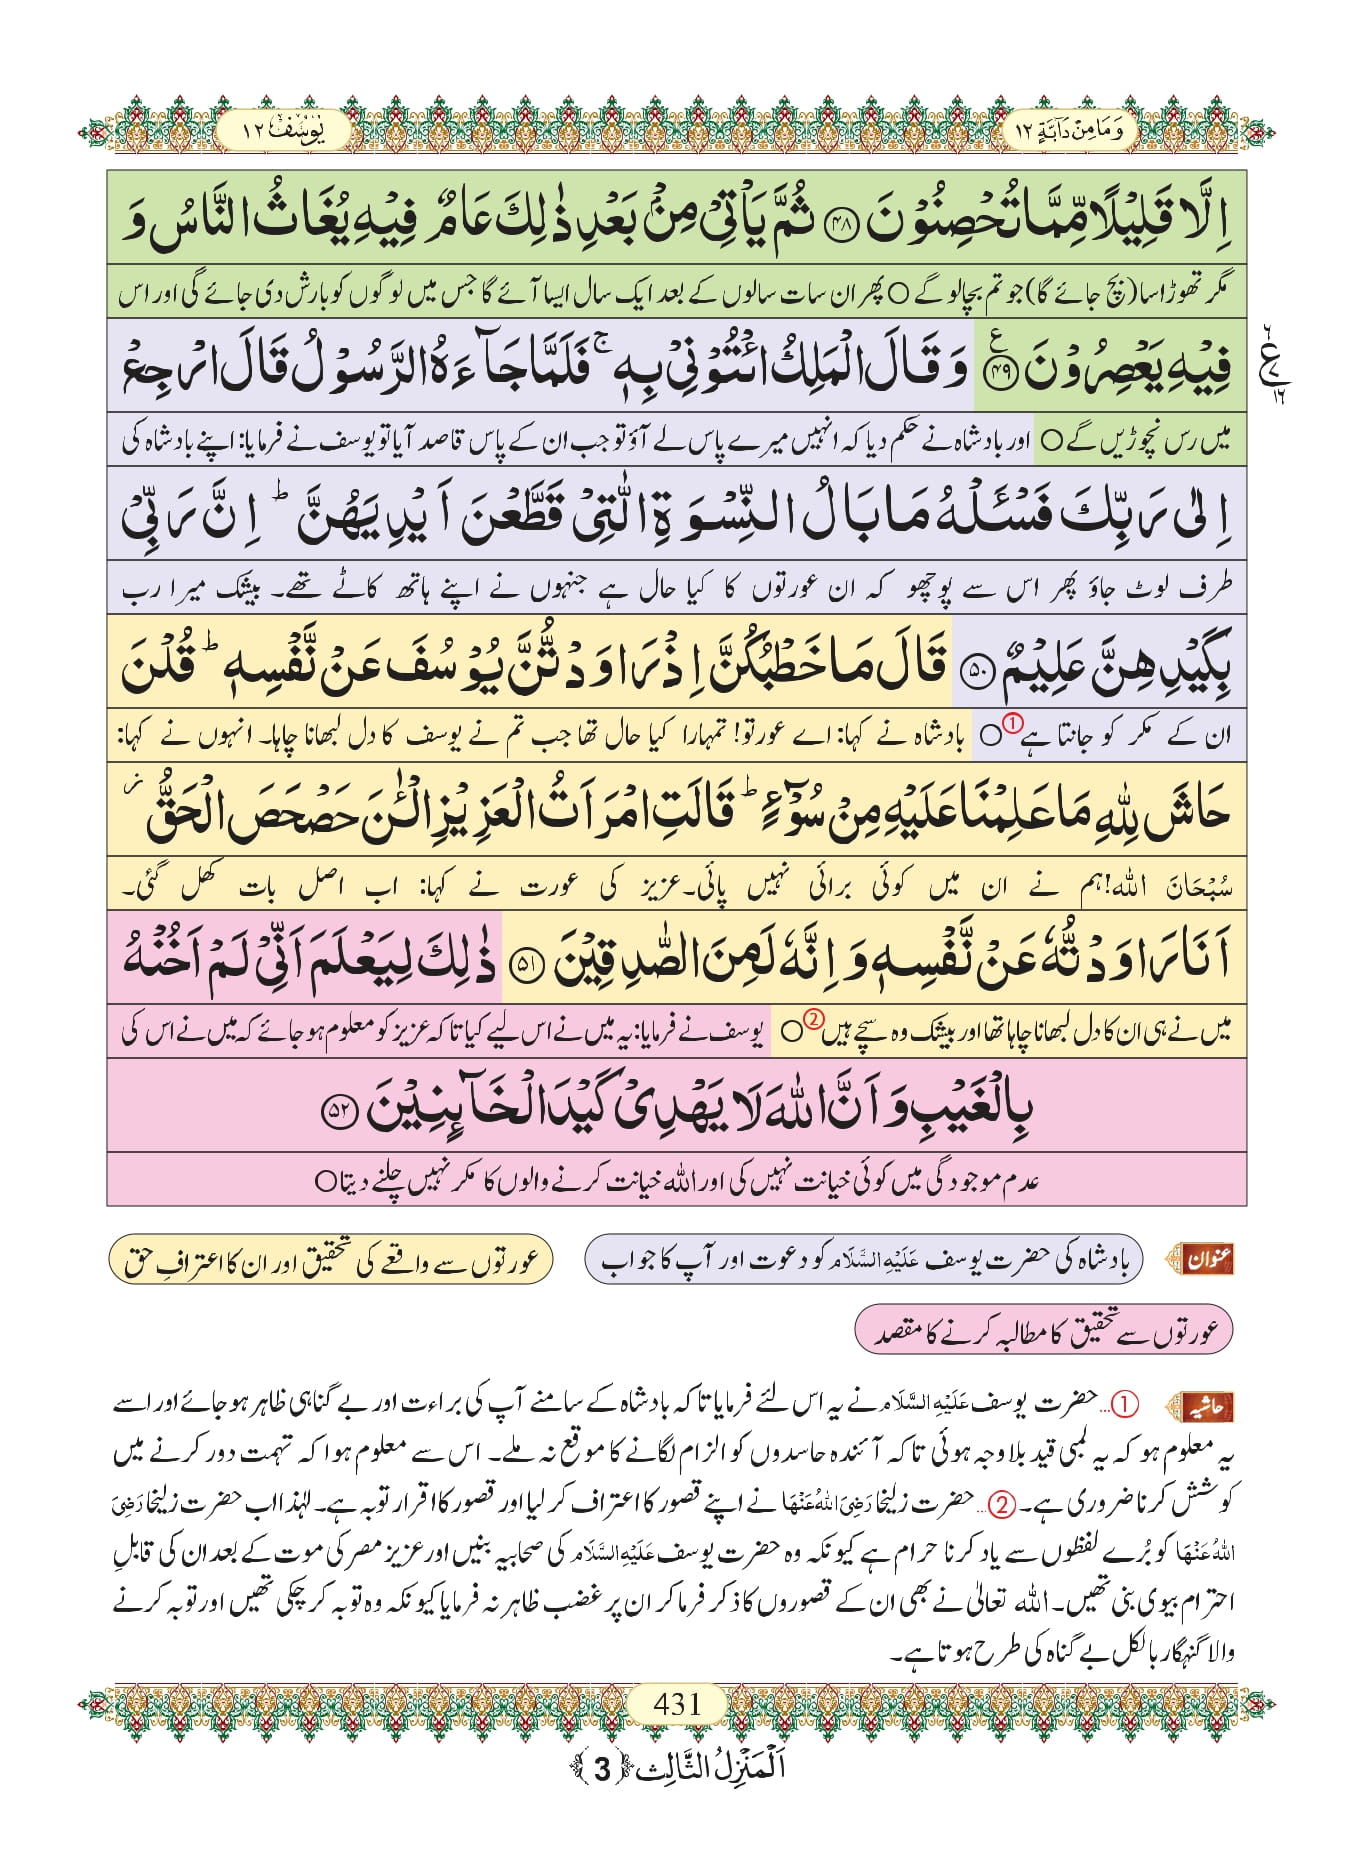 وَمَا مِنْ دَآبَّةٍ ١٢
يُوْسُف ١٢
اِلَّا قَلِيْلًا مِّمَّا تُحْصِنُوْنَ ﴿۴۸﴾ ثُمَّ يَاْتِيْ مِنْۢ بَعْدِ ذٰلِكَ عَامٌ فِيْهِ يُغَاثُ النَّاسُ وَ
مگر تھوڑا سا (بچ جائے گا) جو تم بچالو گے ○ پھر ان سات سالوں کے بعد ایک سال ایسا آئے گا جس میں لوگوں کو بارش دی جائے گی اور اس
فِيْهِ يَعْصِرُوْنَ ﴿۴۹﴾ ع وَ قَالَ الْمَلِكُ ائْتُوْنِيْ بِهٖ ۚ فَلَمَّا جَآءَهُ الرَّسُوْلُ قَالَ ارْجِعْ
٦
ع
٧
١٦
میں رس نچوڑیں گے ○ اور بادشاہ نے حکم دیا کہ انہیں میرے پاس لے آؤ تو جب ان کے پاس قاصد آیا تو یوسف نے فرمایا: اپنے بادشاہ کی
اِلٰى رَبِّكَ فَسْـَٔلْهُ مَا بَالُ النِّسْوَةِ الّٰتِيْ قَطَّعْنَ اَيْدِيَهُنَّ ؕ اِنَّ رَبِّيْ
طرف لوٹ جاؤ پھر اس سے پوچھو کہ ان عورتوں کا کیا حال ہے جنہوں نے اپنے ہاتھ کاٹے تھے۔ بیشک میرا رب
بِكَيْدِهِنَّ عَلِيْمٌ ﴿۵۰﴾ قَالَ مَا خَطْبُكُنَّ اِذْ رَاوَدْتُّنَّ يُوْسُفَ عَنْ نَّفْسِهٖ ؕ قُلْنَ
ان کے مکر کو جانتا ہے① ○ بادشاہ نے کہا: اے عورتو! تمہارا کیا حال تھا جب تم نے یوسف کا دل لبھانا چاہا۔ انہوں نے کہا:
حَاشَ لِلّٰهِ مَا عَلِمْنَا عَلَيْهِ مِنْ سُوْٓءٍ ؕ قَالَتِ امْرَاَتُ الْعَزِيْزِ الْـٰٔنَ حَصْحَصَ الْحَقُّ ؗ
سُبْحَانَ اللہ! ہم نے ان میں کوئی برائی نہیں پائی۔ عزیز کی عورت نے کہا: اب اصل بات کھل گئی۔
اَنَا رَاوَدْتُّهٗ عَنْ نَّفْسِهٖ وَ اِنَّهٗ لَمِنَ الصّٰدِقِيْنَ ﴿۵۱﴾ ذٰلِكَ لِيَعْلَمَ اَنِّيْ لَمْ اَخُنْهُ
میں نے ہی ان کا دل لبھانا چاہا تھا اور بیشک وہ سچے ہیں② ○ یوسف نے فرمایا: یہ میں نے اس لیے کیا تاکہ عزیز کو معلوم ہو جائے کہ میں نے اس کی
بِالْغَيْبِ وَ اَنَّ اللّٰهَ لَا يَهْدِيْ كَيْدَ الْخَآىِٕنِيْنَ ﴿۵۲﴾
عدم موجودگی میں کوئی خیانت نہیں کی اور اللہ خیانت کرنے والوں کا مکر نہیں چلنے دیتا ○
عنوان بادشاہ کی حضرت یوسف عَلَیْہِ السَّلَام کو دعوت اور آپ کا جواب عورتوں سے واقعے کی تحقیق اور ان کا اعترافِ حق
عورتوں سے تحقیق کا مطالبہ کرنے کا مقصد
حاشیہ ①...حضرت یوسف عَلَیْہِ السَّلَام نے یہ اس لئے فرمایا تاکہ بادشاہ کے سامنے آپ کی براءت اور بے گناہی ظاہر ہو جائے اور اسے
یہ معلوم ہو کہ یہ لمبی قید بلا وجہ ہوئی تاکہ آئندہ حاسدوں کو الزام لگانے کا موقع نہ ملے۔ اس سے معلوم ہوا کہ تہمت دور کرنے میں
کوشش کرنا ضروری ہے۔ ②...حضرت زلیخا رَضِیَ اللہُ عَنْہَا نے اپنے قصور کا اعتراف کر لیا اور قصور کا اقرار توبہ ہے۔ لہٰذا اب حضرت زلیخا رَضِیَ
اللہُ عَنْہَا کو بُرے لفظوں سے یاد کرنا حرام ہے کیونکہ وہ حضرت یوسف عَلَیْہِ السَّلَام کی صحابیہ بنیں اور عزیز مصر کی موت کے بعد ان کی قابلِ
احترام بیوی بنی تھیں۔ اللہ تعالیٰ نے بھی ان کے قصوروں کا ذکر فرما کر ان پر غضب ظاہر نہ فرمایا کیونکہ وہ توبہ کر چکی تھیں اور توبہ کرنے
والا گنہگار بالکل بے گناہ کی طرح ہوتا ہے۔
431
اَلْمَنْزِلُ الثَّالِث ﴿3﴾